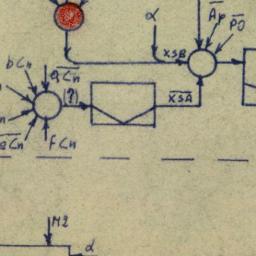 α
Ap
PO
XSB
bCn
aCn
[?]
XSA
fCn
M2
α